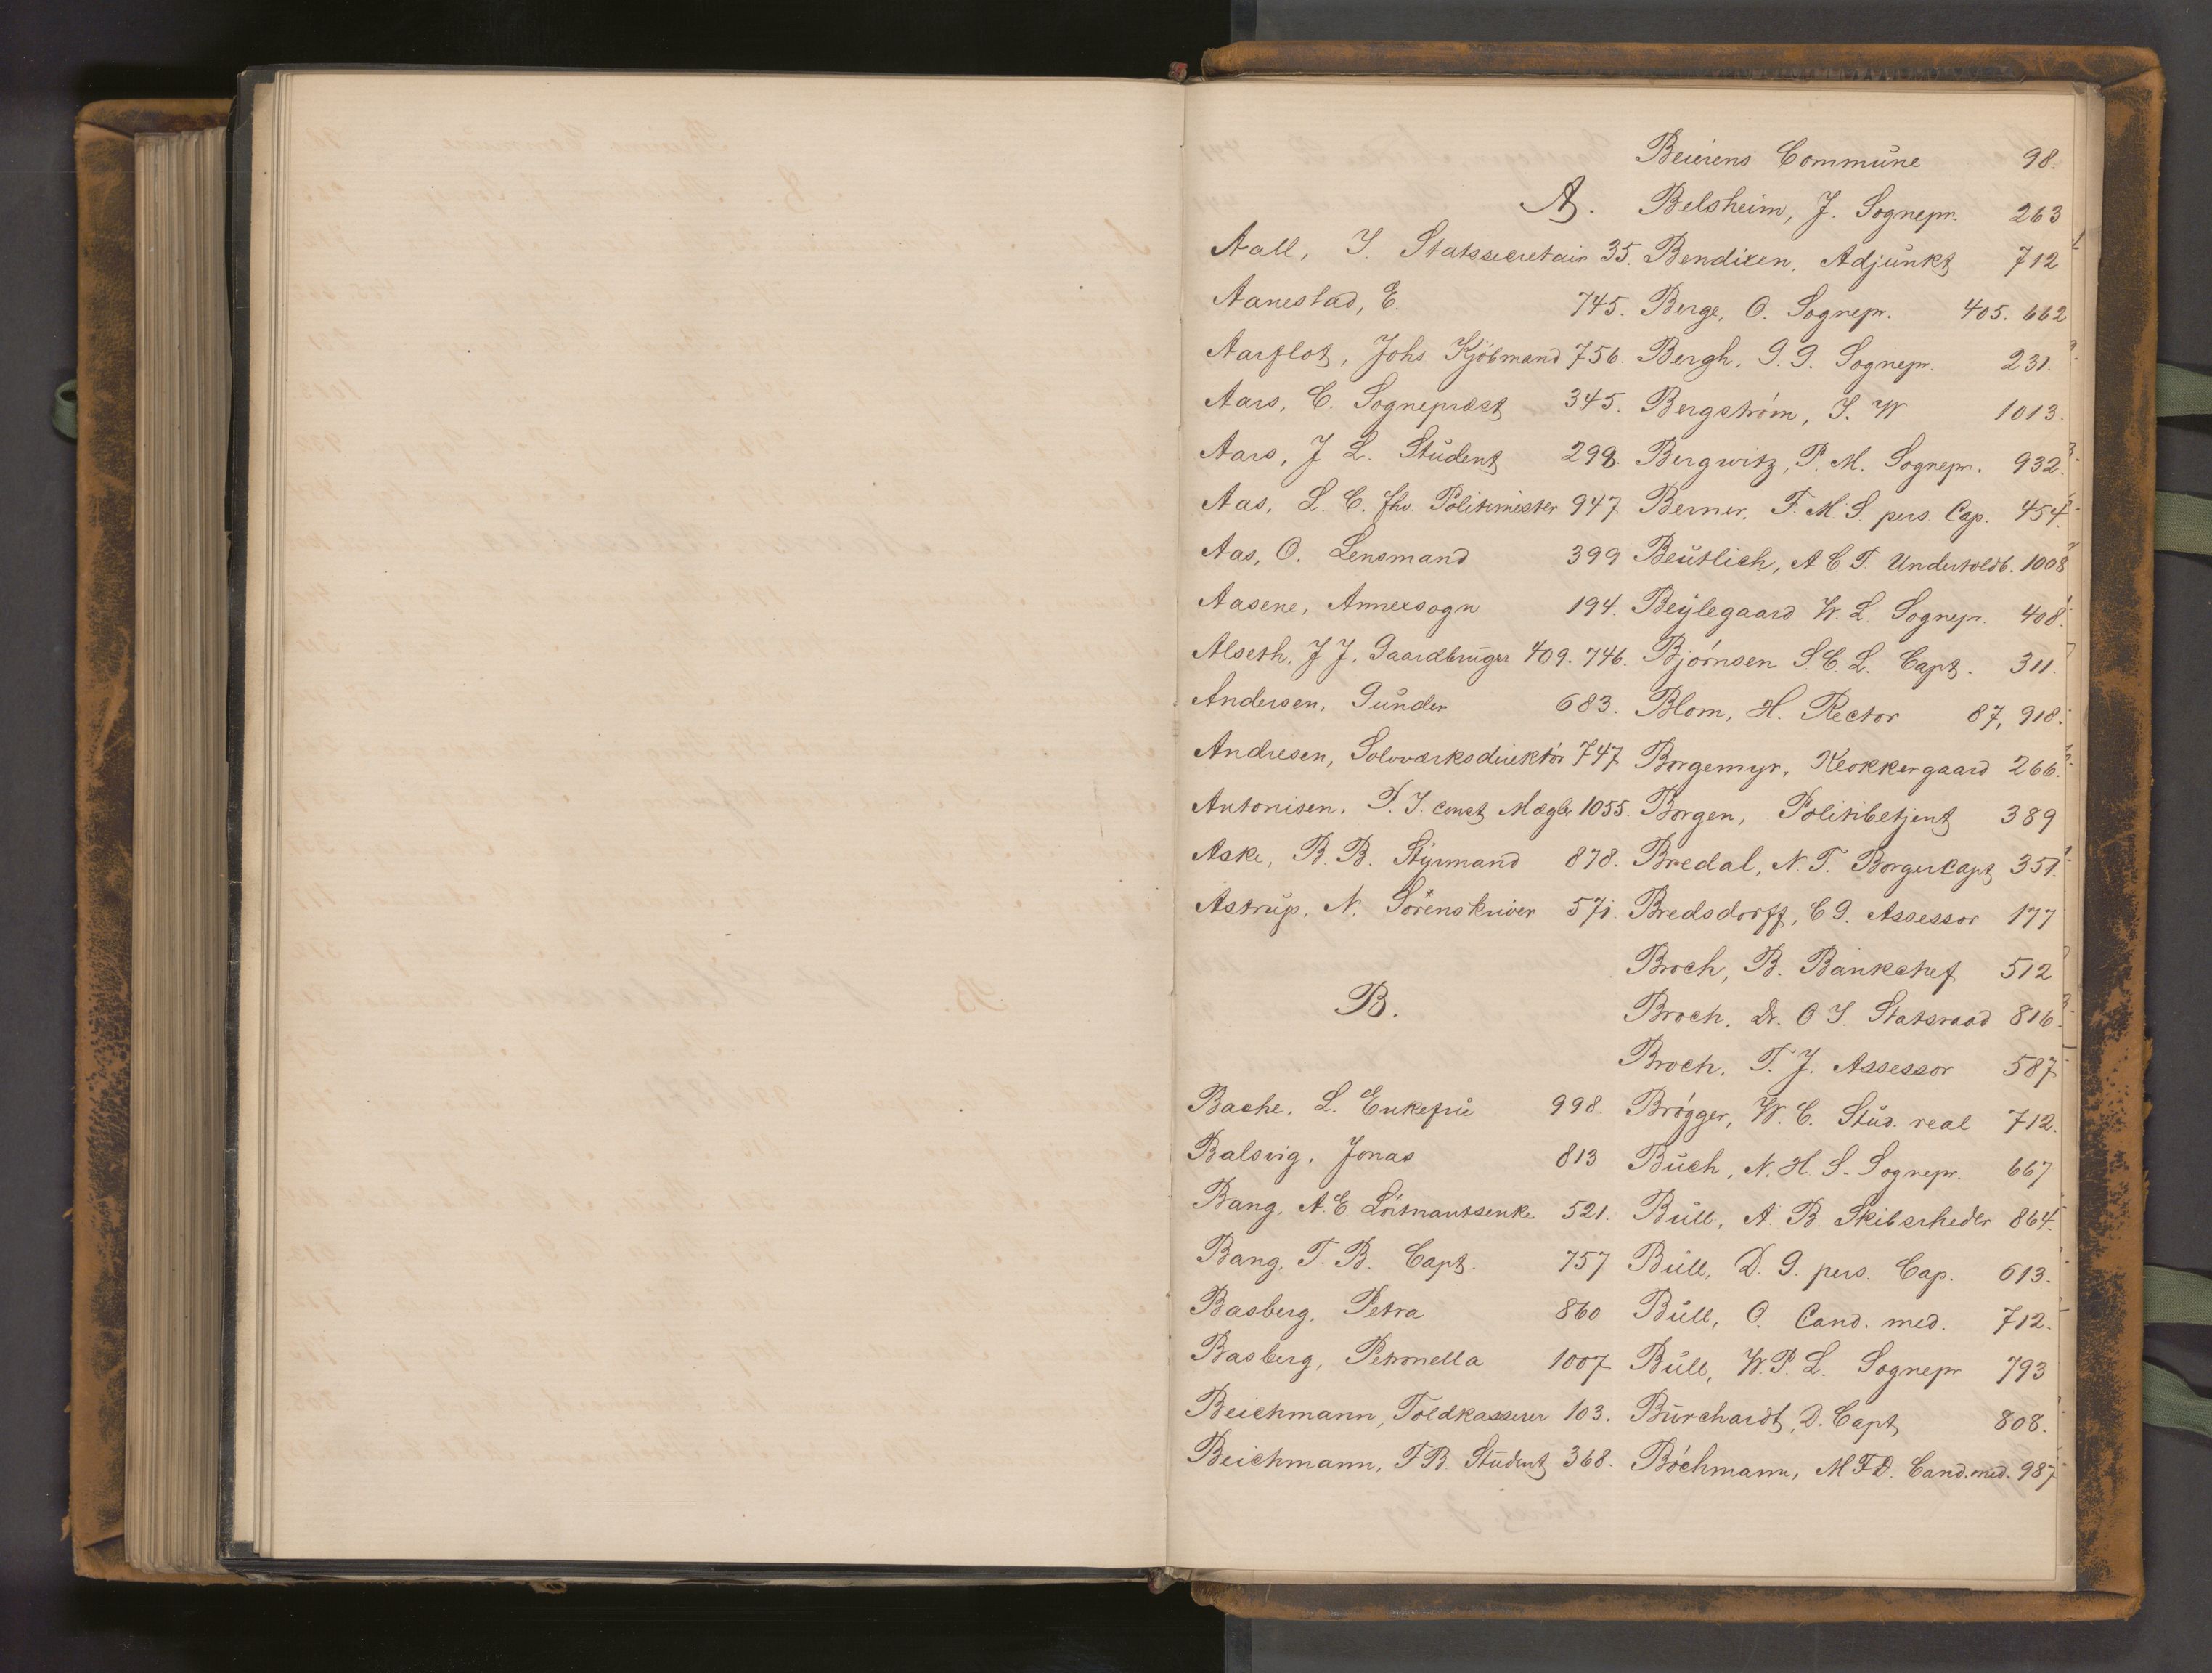 A.
Aall, I. Statssecretair 35.
Aanestad, E. 745.
Aarflot, Johs Kjöbmand 756.
Aars, C. Sognepræst 345.
Aars, J L. Student 298.
Aas, L. C. fhv. Politimester 947
Aas, O. Lensmand 399
Aasene, Annexsogn 194.
Alseth, J J. Gaardbruger 409. 746.
Andersen, Gunder 683.
Andresen, Solvværksdirektör 747
Antonisen, P. I. const Mægler 1055.
Aske, B. B. Styrmand 878.
Astrup, N. Sörenskriver 571.
B.
Bache, L. Enkefru 998.
Balsvig, Jonas 813
Bang, A. E. Löitnantsenke 521.
Bang, T. B. Capt. 757
Basberg, Petra 860
Basberg, Petronella 1007
Beichmann, Toldkasserer 103.
Beichmann, F B. Student 368.
Beierens Commune 98.
Belsheim, J. Sognepr. 263
Bendixen, Adjunkt 712
Berge, O. Sognepr. 405. 662
Bergh, G. G. Sognepr. 231.
Bergström, I. W 1013.
Bergwitz, P. M. Sognepr. 932.
Berner, F. M. S. pers. Cap. 454.
Beutlich, A C. T. Undertoldb. 1008
Beylegaard W. L. Sognepr. 408.
Bjørnsen S. C. L. Capt. 311.
Blom, H. Rector 87, 918.
Borgemyr, Klokkergaard 266.
Borgen, Politibetjent 389
Bredal, N. T. Borgercapt 351.
Bredsdorff, C G. Assessor 177
Broch, B. Bankchef 512
Broch, Dr. O I. Statsraad 816.
Broch, T. J. Assessor 587
Brøgger, W. C. Stud. real 712.
Buch, N. H. S. Sognepr. 667
Bull, A. B. Skibsrheder 864.
Bull, D. G. pers. Cap. 613.
Bull, O. Cand. med. 712.
Bull, W. P. L. Sognepr 793
Burchardt, D. Capt 808.
Böchmann, M F D. Cand. med. 987